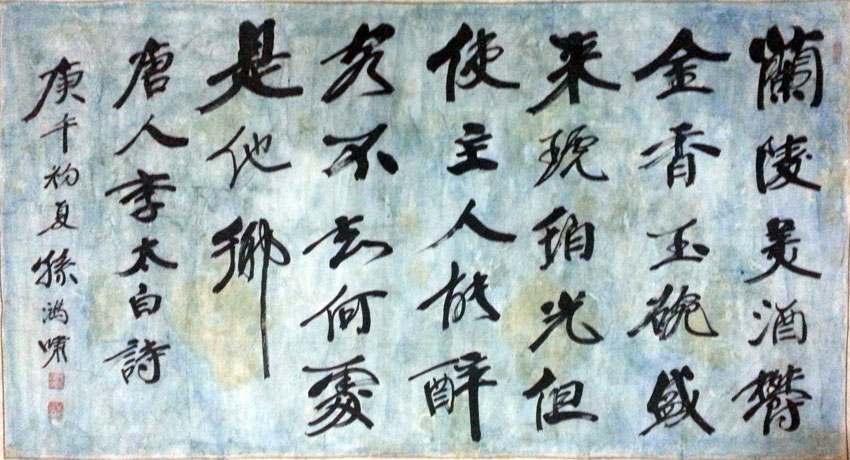 蘭陵美酒鬱
金香玉碗盛
来琥珀光但
使主人能醉
客不知何處
是他鄉
唐人李太白詩
庚午初夏鴻嘯